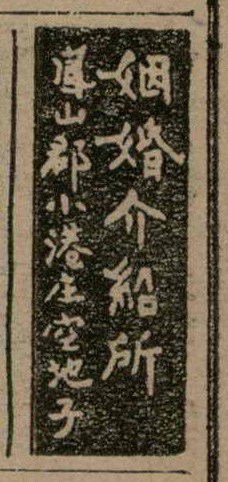 姻婚介紹所
鳳山郡小港庄空地子